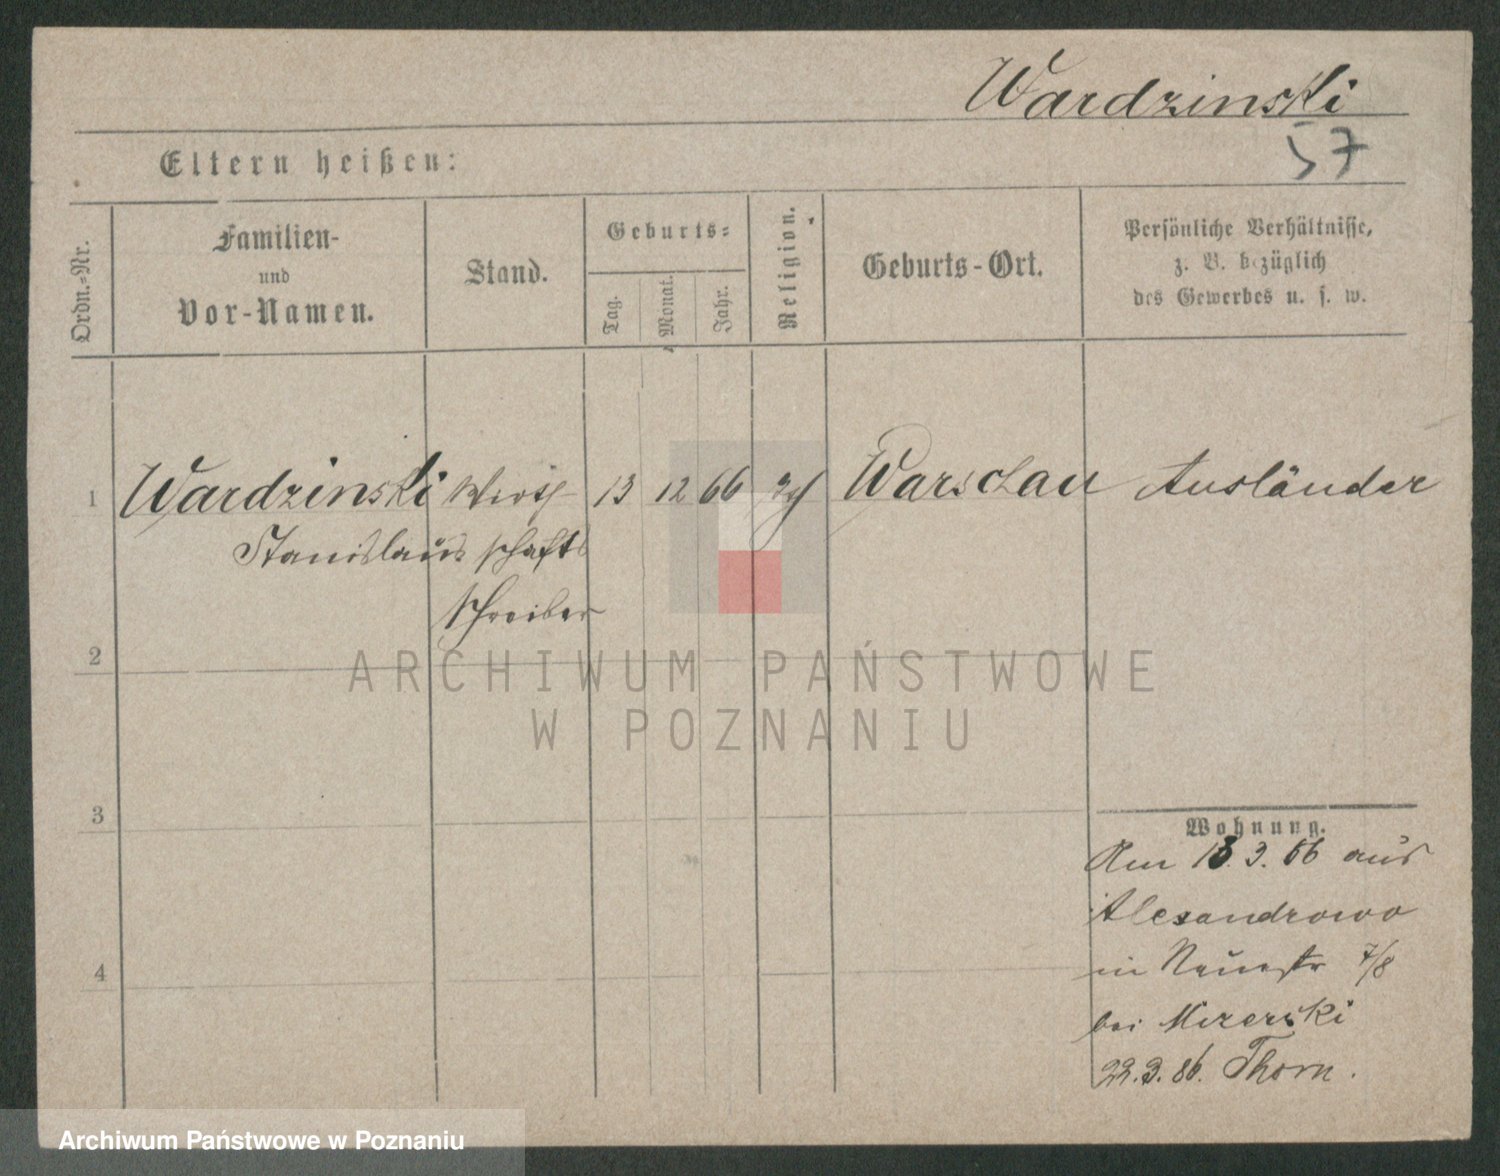 Wardzinski
57
Eltern heißen:
Ordn.-Nr.
Familien-
und
Vor-Namen.
Stand.
Geburts-
Tag.
Monat.
Jahr.
Religion.
Geburts-Ort.
Persönliche Verhältnisse,
z. B. bezüglich
des Gewerbes u. s. w.
1 Wardzinski Wirth 13 12 66 Warschau Ausländer
Stanislaus schafts
schreiber
2
ARCHIWUM PAŃSTWOWE
W POZNANIU
3
Wohnung.
Am 18.3.86 aus
Alexandrowo
in Neuestr 7/8
bei Mizerski
4
22.3.86. Thorn.
Archiwum Państwowe w Poznaniu